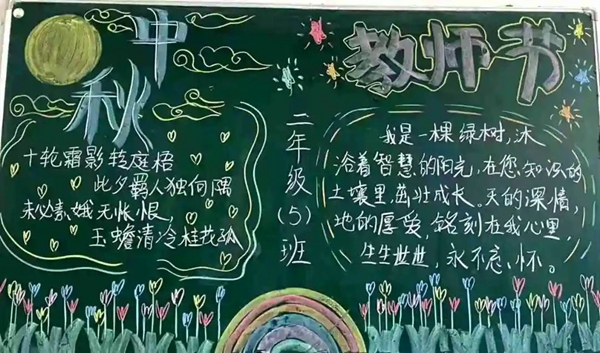 中秋
十轮霜影转庭梧
此夕羁人独向隅
未必素娥无怅恨,
玉蟾清冷桂花孤
二年级(5)班
教师节
我是一棵绿树,沐
浴着智慧的阳光,在您知识的
土壤里茁壮成长。天的深情,
地的厚爱,铭刻在我心里,
生生世世,永不忘怀。